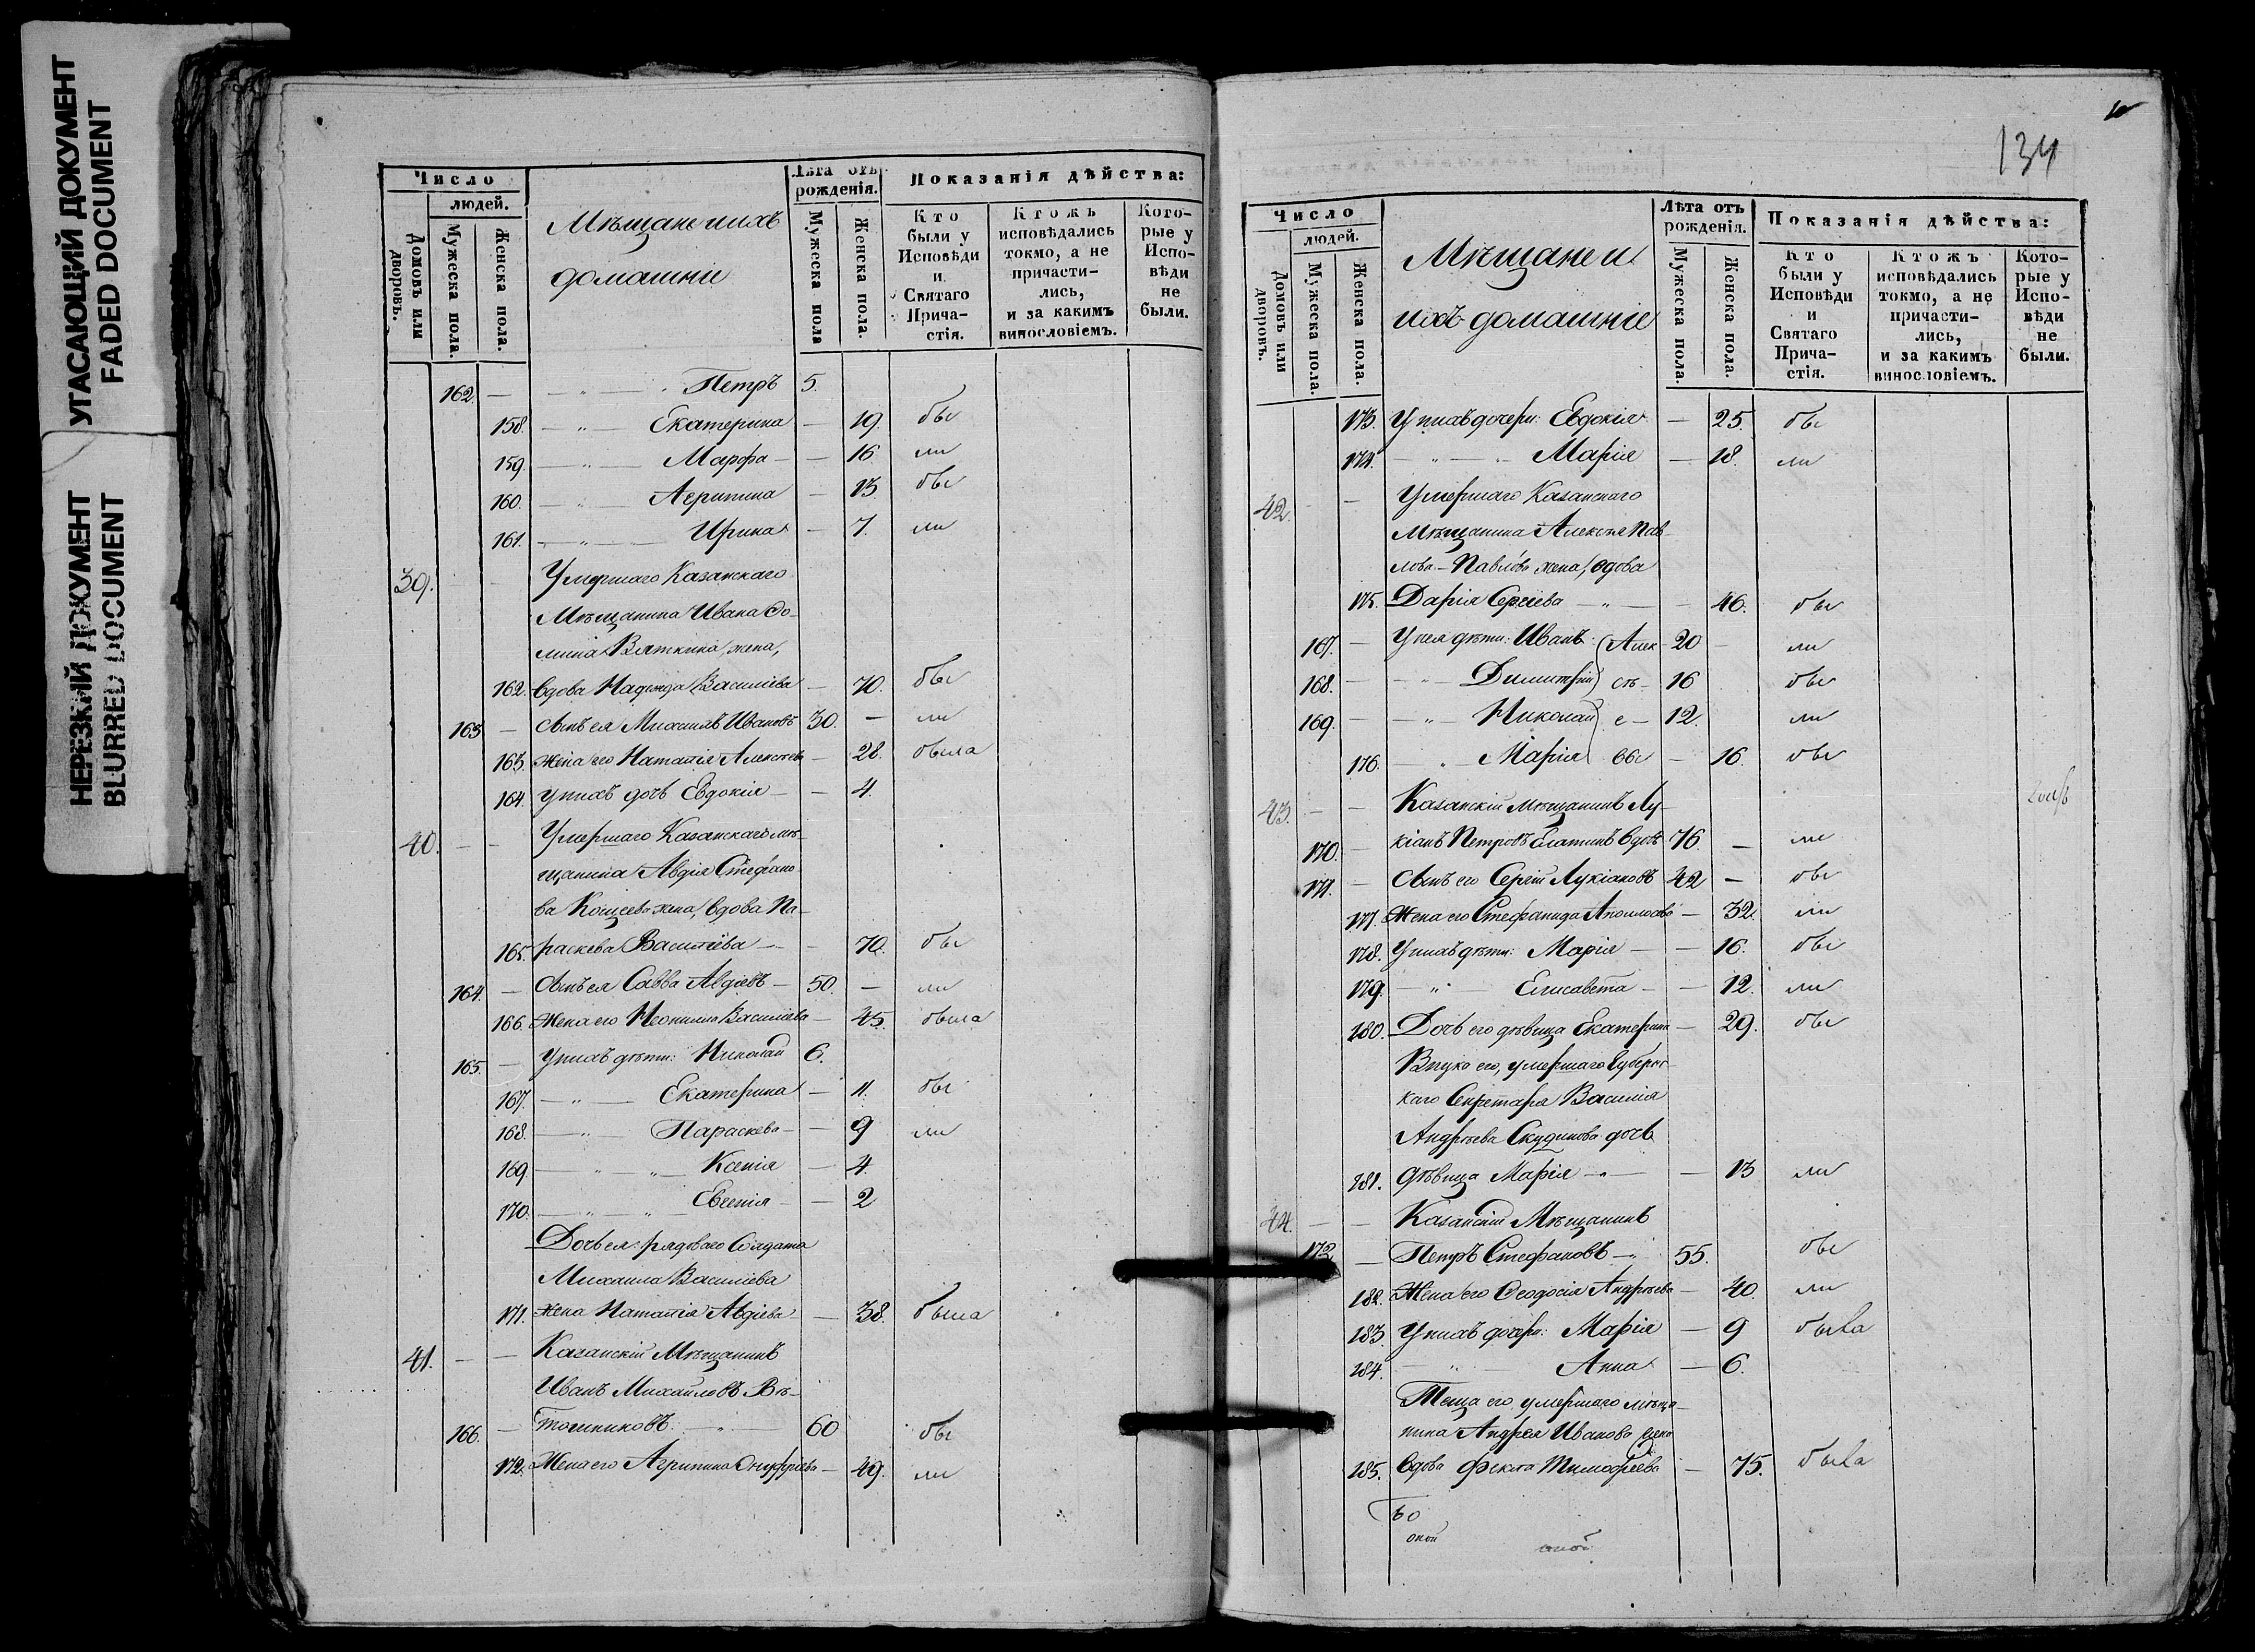 УГАСАЮЩИЙ ДОКУМЕНТ
FADED DOCUMENT
НЕРЕЗКИЙ ДОКУМЕНТ
BLURRED DOCUMENT
Число
людей.
Домовъ или дворовъ.
Мужеска пола.
Женска пола.
Мѣщане и ихъ
домашніе
Лѣта отъ
рожденія.
Мужеска пола
Женска пола.
Показанія дѣйства:
Кто
были у
Исповѣди
и
Святаго
Прича-
стія.
Ктожъ
исповѣдались
токмо, а не
причасти-
лись,
и за какимъ
винословіемъ.
Кото-
рые у
Испо-
вѣди
не
были.
162. — Петръ 5.
158. — Екатерина — 19. бы
159. — Марфа — 16. ли
160. — Агрипина — 13. бы
161. — Ирина — 7. ли
39. Умершаго Казанскаго
Мѣщанина Ивана Ѳо-
мина Вяткина жена,
162. вдова Надежда Василіева — 70. бы
163 — Сынъ ея Михаилъ Ивановъ 30. — ли
163. Жена его Наталія Алексѣева — 28. была
164. У нихъ дочь Евдокія — 4.
40. — — Умершаго Казанскаго мѣ-
щанина Авдія Стефано-
ва Кощеева жена, вдова Па-
165. раскева Василіева — 70. бы
164. — Сынъ ея Савва Авдіевъ — 50. — ли
166. Жена его Неонилла Василіева — 45. была
165. — У нихъ дѣти: Николай 6.
167. — Екатерина — 11. бы
168. — Параскева — 9 ли
169. — Ксенія — 4.
170. — Евгенія — 2
Дочь ея: рядоваго Солдата
Михаила Василіева
171. жена Наталія Авдіева — 38. была
41. — — Казанскій Мѣщанинъ
Иванъ Михайловъ Вѣ-
166. — тошниковъ. — 60 бы
172. Жена его Агрипина Онуфріева — 49. ли
134
Число
людей.
Домовъ или дворовъ.
Мужеска пола.
Женска пола.
Мѣщане и
ихъ домашніе
Лѣта отъ
рожденія.
Мужеска пола.
Женска пола.
Показанія дѣйства:
Кто
были у
Исповѣди
и
Святаго
Прича-
стія.
Ктожъ
исповѣдались
токмо, а не
причасти-
лись,
и за какимъ
винословіемъ.
Кото-
рые у
Испо-
вѣди
не
были.
173. У нихъ дочери: Евдокія — 25. бы
174. — Марія — 18. ли
42. — Умершаго Казанскаго
Мѣщанина Алексѣя Пав-
лова Павлова жена, вдова
175. Дарія Сергіева — 46. бы
167. — У нея дѣти: Иванъ (Алек- 20 — ли
168. — Димитрій сѣ- 16 бы
169. — Николай е- 12. ли
176. — Марія вы — 16. бы
43. — — Казанскій мѣщанинъ Лу-
170. кіанъ Петровъ Елатинъ вдовъ 76. — ли
171. — Сынъ его Сергій Лукіановъ 42 — бы
177. Жена его Стефанида Аполлосова — 32. ли
178. У нихъ дѣти: Марія — 16. бы
179. — Елисавета — 12. ли
180. Дочь его дѣвица Екатерина — 29. бы
Внука его, умершаго Губернс-
каго Секретаря Василія
Андреева Скудинова дочь
181. дѣвица Марія — 13 ли
44. — — Казанскій Мѣщанинъ
172. — Петръ Стефановъ — 55. бы
182. Жена его Ѳеодосія Андреева — 40. ли
183. У нихъ дочери: Марія — 9 была
184. — Анна — 6.
Теща его, умершаго мѣща-
нина Андрея Иванова жена
185. вдова Фекла Тимофеева — 75. была